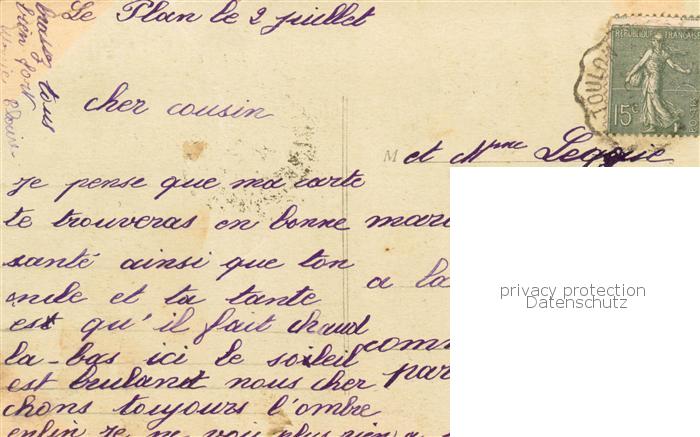 Le Plan le 2 juillet
cher cousin
je pense que ma carte
te trouveras en bonne
santé ainsi que ton
oncle et ta tante
est qu'il fait chaud
la-bas ici le soleil
est brulant nous cher
chons toujours l'ombre
enfin je ne vois plus rien a
brassez tous
bien fort
M et Mme
mari
a la
com
par
RÉPUBLIQUE FRANÇAISE
15c
TOULO
privacy protection
Datenschutz